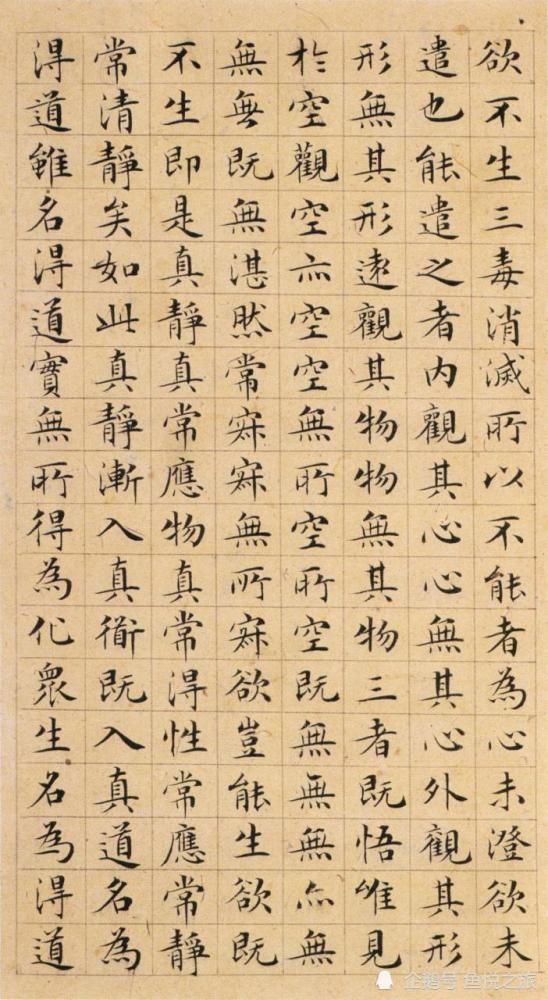 欲不生三毒消滅所以不能者為心未澄欲未
遣也能遣之者内觀其心心無其心外觀其形
形無其形遠觀其物物無其物三者既悟唯見
於空觀空亦空空無所空所空既無無無亦無
無無既無湛然常寂寂無所寂欲豈能生欲既
不生即是真靜真常應物真常得性常應常靜
常清靜矣如此真靜漸入真衜既入真道名為
得道雖名得道實無所得為化眾生名為得道
企鹅号 鱼悦之旅